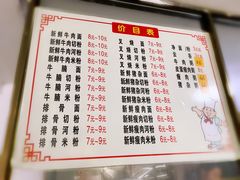 价目表
新鲜牛肉面 8元~10元
新鲜牛肉切粉 8元~10元
新鲜牛肉河粉 8元~10元
新鲜牛肉米粉 8元~10元
牛腩面 7元~9元
牛腩切粉 7元~9元
牛腩河粉 7元~9元
牛腩米粉 7元~9元
排骨面 7元~9元
排骨切粉 7元~9元
排骨河粉 7元~9元
排骨米粉 7元~9元
叉烧面 7元~9元
叉烧切粉 7元~9元
叉烧河粉 7元~9元
叉烧米粉 7元~9元
新鲜猪杂面 6元~8元
新鲜猪杂切粉 6元~8元
新鲜猪杂河粉 6元~8元
新鲜猪杂米粉 6元~8元
新鲜瘦肉面 6元~8元
新鲜瘦肉切粉 6元~8元
新鲜瘦肉河粉 6元~8元
新鲜瘦肉米粉 6元~8元